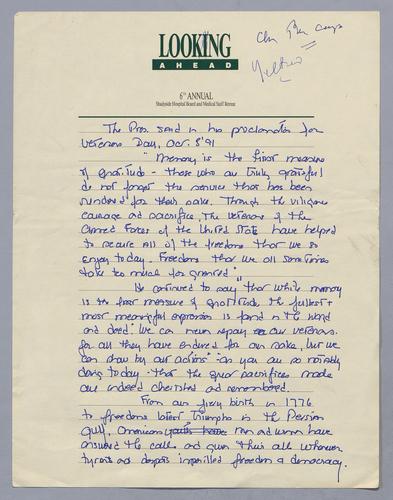 LOOKING
AHEAD
6th ANNUAL
Shadyside Hospital Board and Medical Staff Retreat
The Pres. said in his proclamation for
Veterans Day, Oct. 8 '91
"Memory is the first measure
of gratitude - those who are truly grateful
do not forget the service that has been
rendered for their sake. Through the vigilance
courage and sacrifice, The veterans of the
Armed Forces of the United States have helped
to secure all of the freedoms that we so
enjoy today. Freedoms that we all sometimes
take too much for granted"
He continued to say that while memory
is the first measure of gratitude, the fullest &
most meaningful expression is found in the word
and deed. We can never repay our veterans
for all they have endured for our sake, but we
can show by our actions - as you are so notably
doing today - that the great sacrifices made
are indeed cherished and remembered.
From our fiery birth in 1776
to freedoms latest Triumphs in the Persian
Gulf, Americans youths have men and women have
answered the call and given their all whenever
tyrants and despots imperilled freedom & democracy.